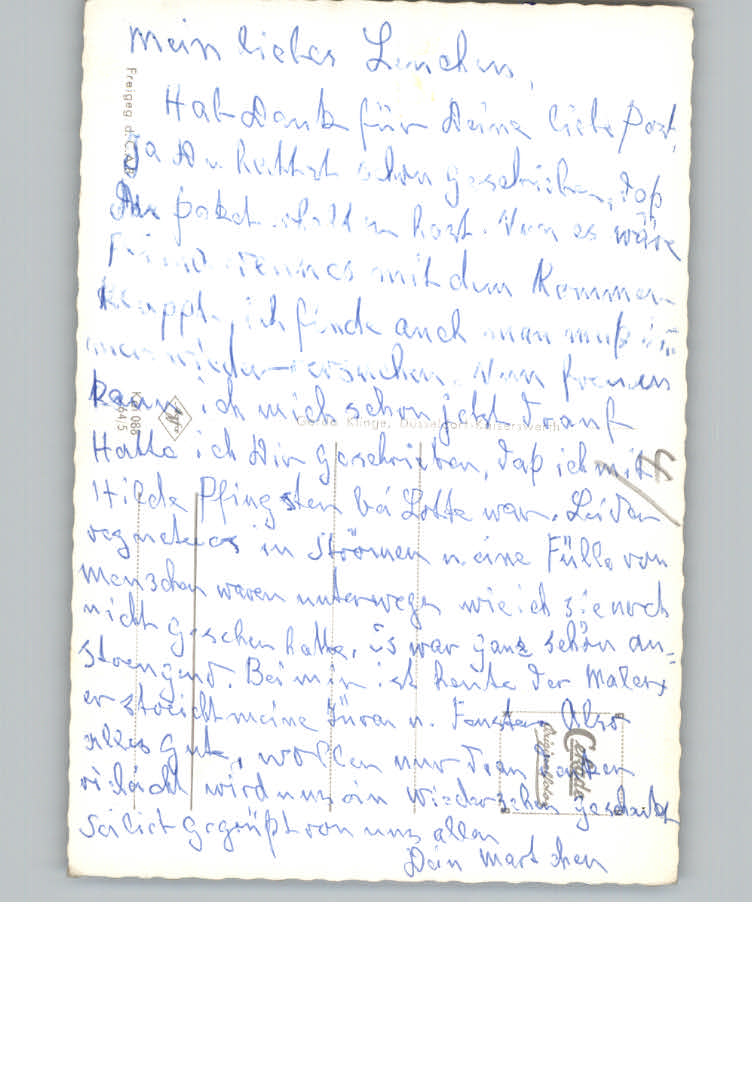 Mein liebes Lenchen,
Hab Dank für Deine liebe Post,
Ja Du hattest schon geschrieben, daß
Du paket erhalten hast. Nun es wäre
wenn es mit dem Kommen
klappt, ich finde auch man muß im
mer wieder versuchen. Nun freuen
kann ich mich schon jetzt drauf
Hatte ich Dir geschrieben, daß ich mit
Hilde Pfingsten bei Lotte war. Leider
regnete es in Strömen u. eine Fülle von
Menschen waren unterwegs wie ich sie noch
nicht gesehen hatte, es war ganz schön an=
strengend. Bei mir ist heute der Maler,
er streicht meine Türen u. Fenster. Also
alles Gute, wollen nur dran denken
vieleicht wird uns ein Wiedersehen geschenkt
Seilict gegrüßt von uns allen
Dein Martchen
4
Freigeg. d. C.A.B.
KaI 088
64/5
Gerda Klinge, Düsseldorf-Kaiserswerth
Cekade
Originalfoto